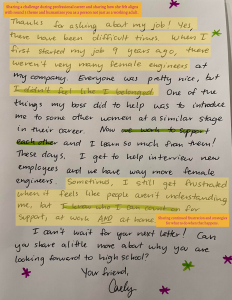 Sharing a challenge during professional career and sharing how she felt aligns
Thanks for asking about my job! Yes,
there have been difficult times. When I
first started my job 9 years ago, there
weren't very many female engineers at
my company. Everyone was pretty nice, but
I didn't feel like I belonged. One of the
things my boss did to help was to introduce
me to some other women at a similar stage
in their career. Now we work to support
each other and I learn so much from them!
These days, I get to help interview new
employees and we have way more female
engineers. Sometimes, I still get frustrated
when it feels like people aren't understanding
me, but I know who I can count on for
support, at work AND at home.
I can't wait for your next letter! Can
you share a little more about why you are
looking forward to high school?
Your friend,
Carly